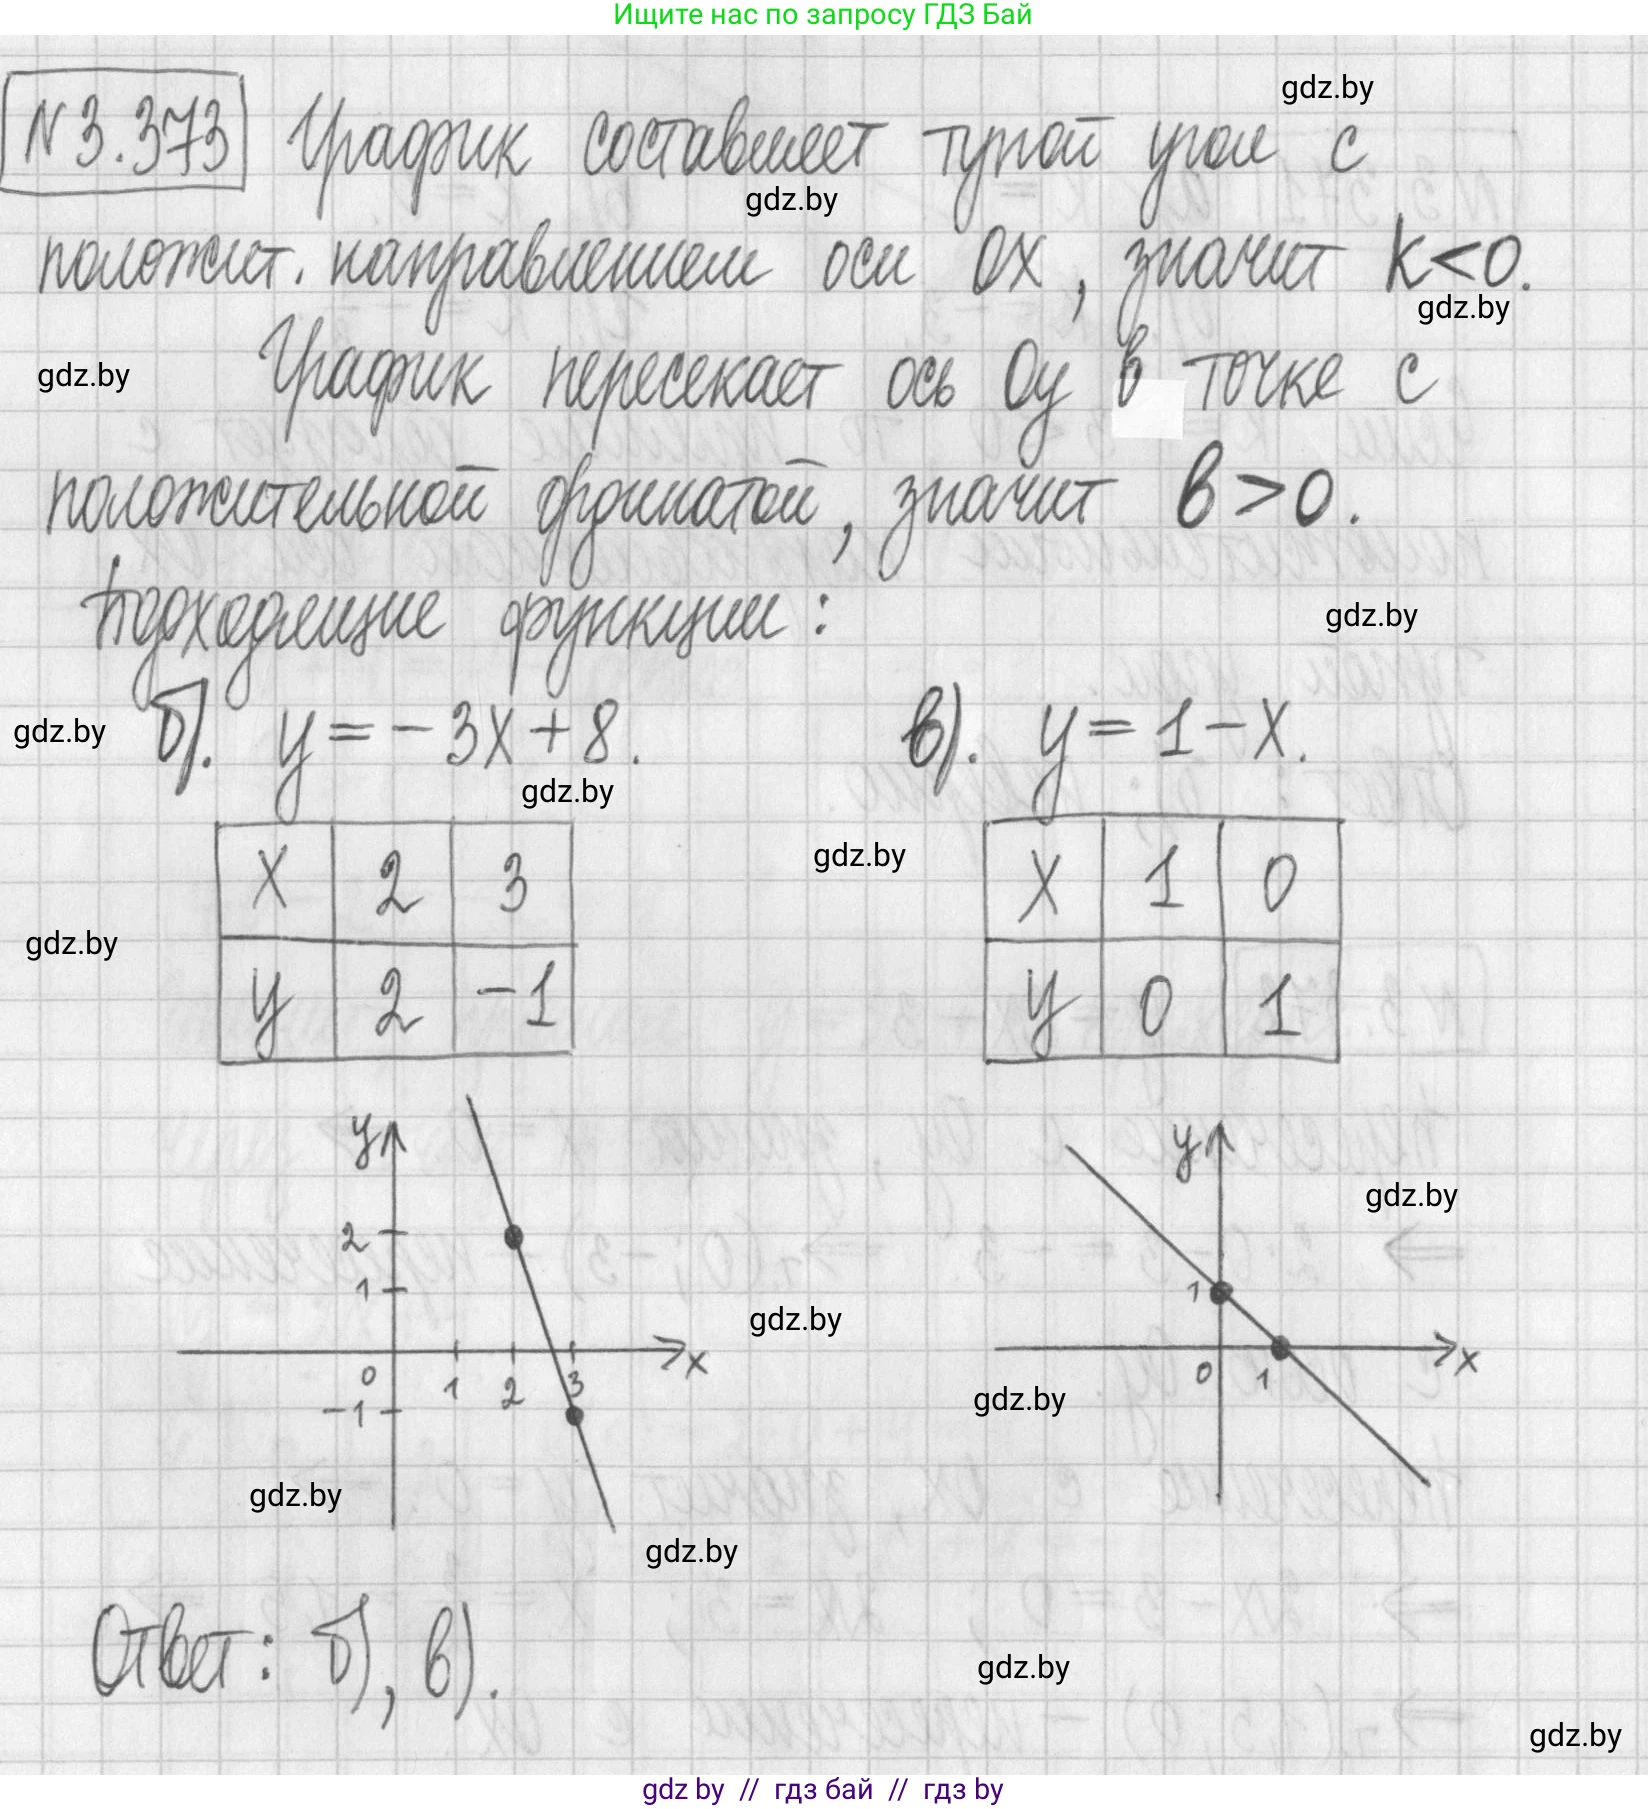 Ищите нас по запросу ГДЗ Бай
gdz.by
N3.373 График составляет тупой угол с
gdz.by
положит. направлением оси Ox, значит k<0.
gdz.by
gdz.by
График пересекает ось Oy в точке с
положительной ординатой, значит b>0.
Подходящие функции:
gdz.by
gdz.by
б). y=-3x+8. в). y=1-x.
gdz.by
gdz.by
x 2 3 x 1 0
gdz.by
y 2 -1 y 0 1
y y
gdz.by
2
1 1
gdz.by
x x
0 1 2 3 0 1
gdz.by
-1
gdz.by
gdz.by
Ответ: б), в).
gdz.by
gdz.by
gdz by // гдз бай // гдз by